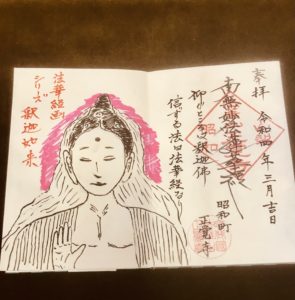 奉拝 令和四年三月吉日
南無妙法蓮華経
仰ぐところは釈迦佛
信する法は法華経なり
昭和町
正覚寺
法華経画
シリーズ
釈迦如来